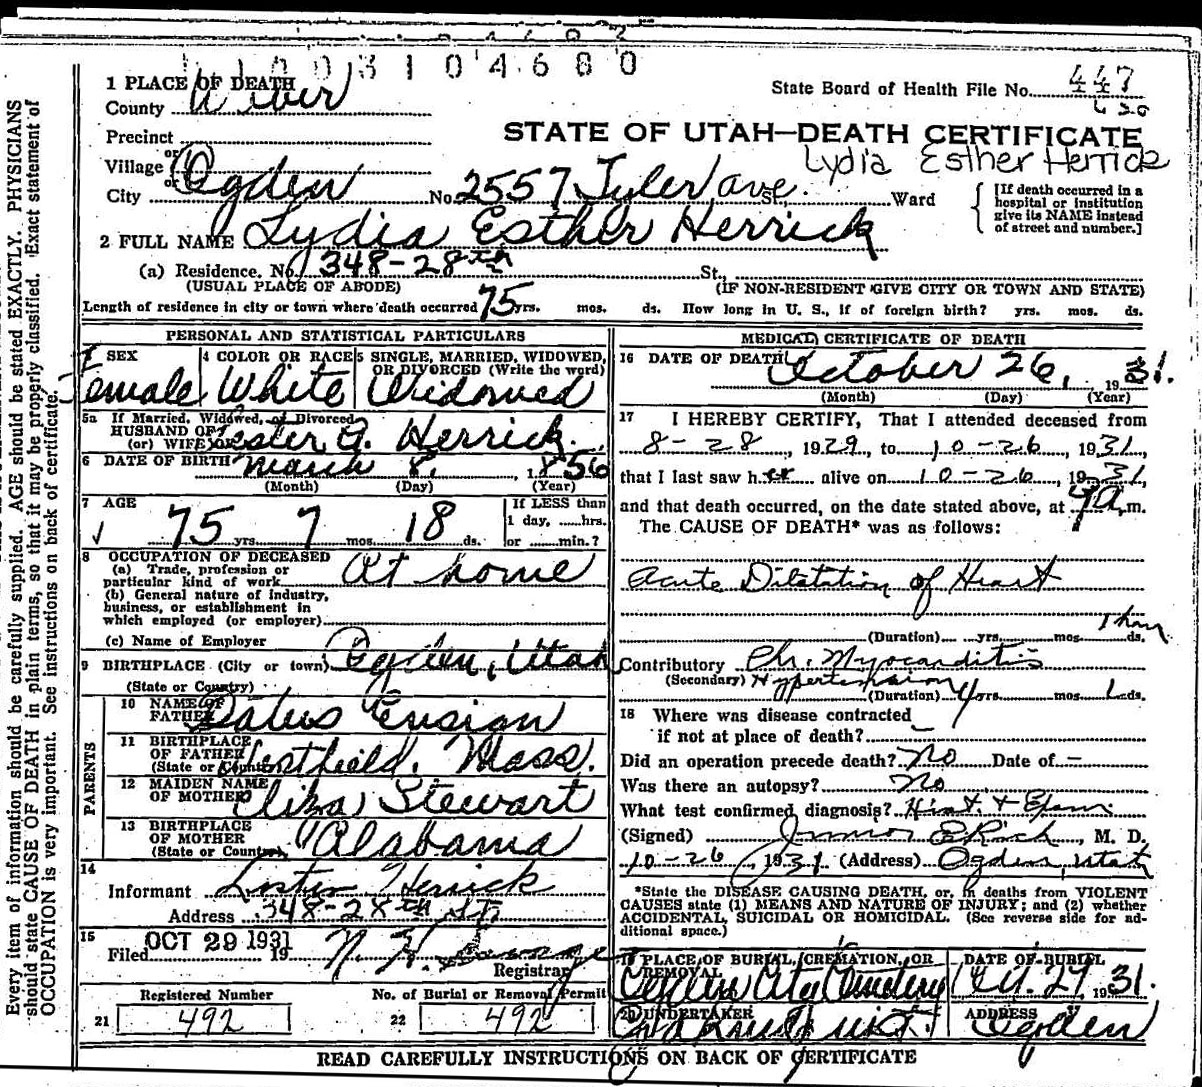 1 0 0 3 1 0 4 6 8 0
1 PLACE OF DEATH
County Weber
State Board of Health File No. 447
Precinct
STATE OF UTAH—DEATH CERTIFICATE
Lydia Esther Herrick
or
Village
or
City Ogden No. 2557 Tyler Ave. St., Ward
[If death occurred in a hospital or institution give its NAME instead of street and number.]
2 FULL NAME Lydia Esther Herrick
(a) Residence. No. 348-28th St.,
(USUAL PLACE OF ABODE) (IF NON-RESIDENT GIVE CITY OR TOWN AND STATE)
Length of residence in city or town where death occurred 75 yrs. mos. ds. How long in U. S., if of foreign birth? yrs. mos. ds.
PERSONAL AND STATISTICAL PARTICULARS
SEX Female
4 COLOR OR RACE White
5 SINGLE, MARRIED, WIDOWED, OR DIVORCED (Write the word) Widowed
5a If Married, Widowed, or Divorced
HUSBAND OF
(or) WIFE OF Lester J. Herrick.
6 DATE OF BIRTH March 8, 1856
(Month) (Day) (Year)
7 AGE 75 yrs. 7 mos. 18 ds.
If LESS than
1 day, ......hrs.
or ......min.?
8 OCCUPATION OF DECEASED
(a) Trade, profession or
particular kind of work At home
(b) General nature of industry,
business, or establishment in
which employed (or employer)
(c) Name of Employer
9 BIRTHPLACE (City or town) Ogden, Utah
(State or Country)
PARENTS
10 NAME OF
FATHER Datus Ensign
11 BIRTHPLACE
OF FATHER
(State or Country) Westfield. Mass.
12 MAIDEN NAME
OF MOTHER Eliza Stewart
13 BIRTHPLACE
OF MOTHER
(State or Country) Alabama
14
Informant Lester Herrick
Address 348-28th St.
15
Filed OCT 29 1931 19 N. H.
Registrar
Registered Number
21 492
No. of Burial or Removal Permit
22 492
MEDICAL CERTIFICATE OF DEATH
16 DATE OF DEATH October 26, 1931.
(Month) (Day) (Year)
17 I HEREBY CERTIFY, That I attended deceased from
8-28, 1929, to 10-26, 1931
that I last saw her alive on 10-26, 1931,
and that death occurred, on the date stated above, at 9 a.m.
The CAUSE OF DEATH* was as follows:
Acute Dilatation of Heart
1 hour
(Duration) yrs. mos. ds.
Contributory Chr. Myocarditis
(Secondary) Hypertension
(Duration) 4 yrs. mos. ds.
18 Where was disease contracted
if not at place of death? —
Did an operation precede death? No Date of —
Was there an autopsy? No
What test confirmed diagnosis? Hist. + Exam
(Signed) Junior E Rich, M. D.
10-26, 1931 (Address) Ogden, Utah
*State the DISEASE CAUSING DEATH, or, in deaths from VIOLENT
CAUSES state (1) MEANS AND NATURE OF INJURY; and (2) whether
ACCIDENTAL, SUICIDAL OR HOMICIDAL. (See reverse side for ad-
ditional space.)
19 PLACE OF BURIAL, CREMATION, OR
REMOVAL Ogden City Cemetery
DATE OF BURIAL
Oct. 29 1931.
20 UNDERTAKER
ADDRESS Ogden
READ CAREFULLY INSTRUCTIONS ON BACK OF CERTIFICATE
Every item of information should be carefully supplied. AGE should be stated EXACTLY. PHYSICIANS
should state CAUSE OF DEATH in plain terms, so that it may be properly classified. Exact statement of
OCCUPATION is very important. See instructions on back of certificate.